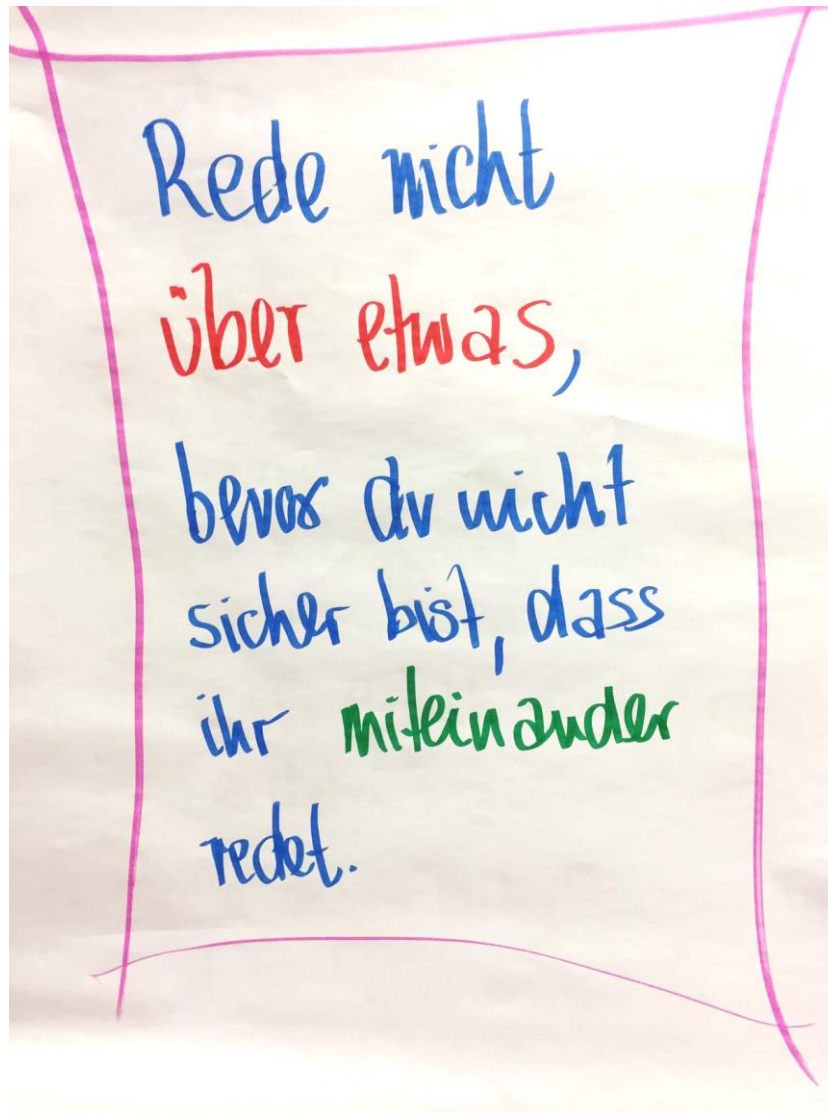 Rede nicht
über etwas,
bevor du nicht
sicher bist, dass
ihr miteinander
redet.